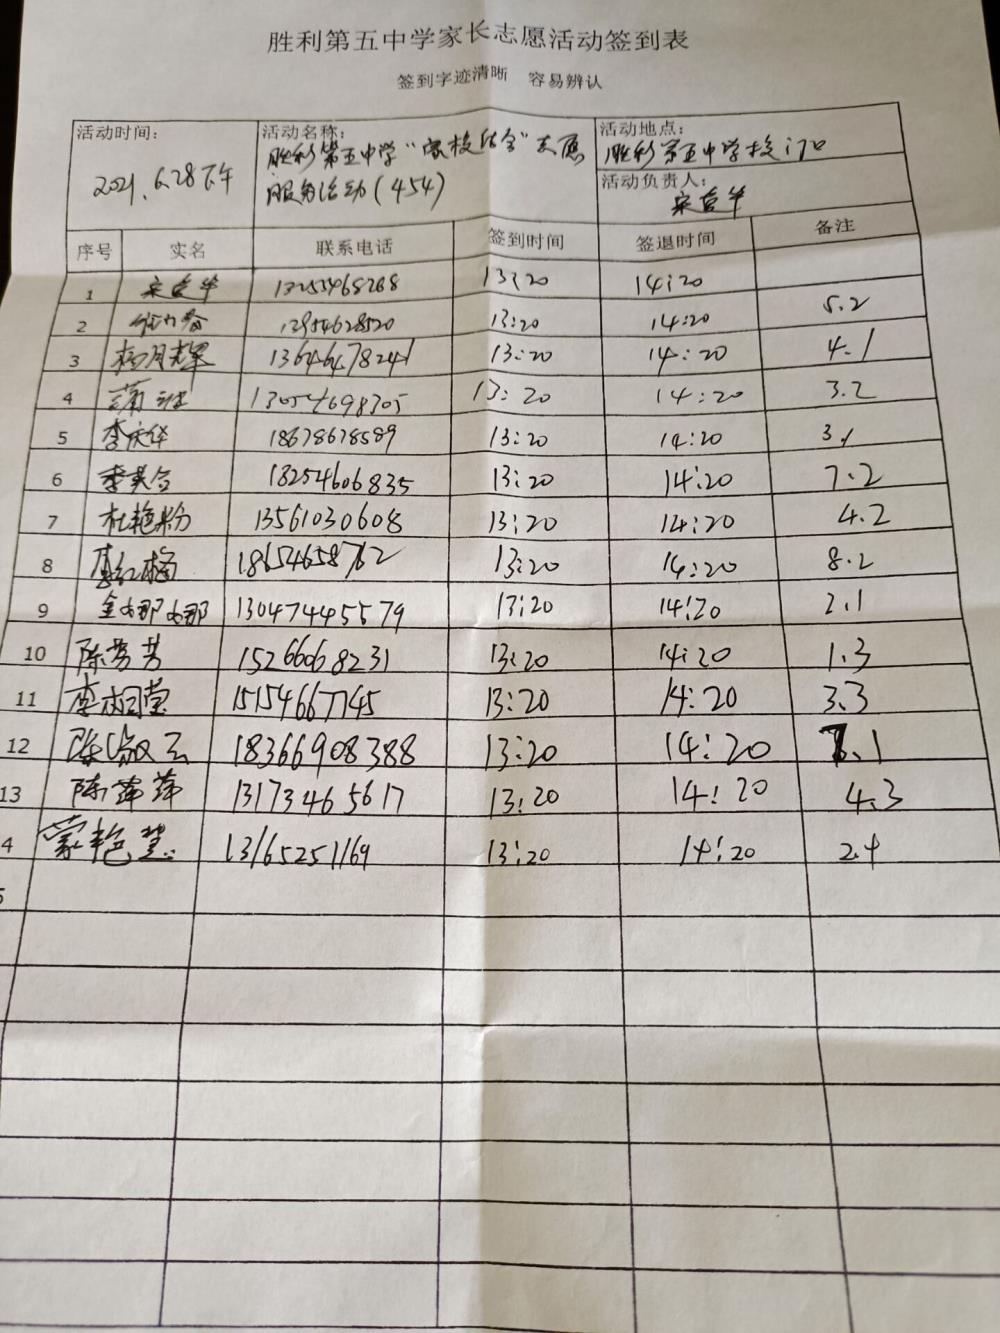 胜利第五中学家长志愿活动签到表
签到字迹清晰 容易辨认
活动时间: 2021.6.28下午
活动名称: 胜利第五中学“家校结合”志愿
服务活动(454)
活动地点: 胜利第五中学校门口
活动负责人:
序号 实名 联系电话 签到时间 签退时间 备注
1 13:20 14:20
2 13954628520 13:20 14:20 5.2
3 13646478241 13:20 14:20 4.1
4 13054698705 13:20 14:20 3.2
5 李庆华 18678678589 13:20 14:20 3.1
6 李英合 18254606835 13:20 14:20 7.2
7 杜艳粉 13561030608 13:20 14:20 4.2
8 李红梅 18654658762 13:20 14:20 8.2
9 金娜娜 13047445579 13:20 14:20 2.1
10 陈芳芳 15266068231 13:20 14:20 1.3
11 15154667745 13:20 14:20 3.3
12 陈淑云 18366908388 13:20 14:20 .1
13 陈萍萍 13173465617 13:20 14:20 4.3
4 蒙艳慧 13165251169 13:20 14:20 2.4
5